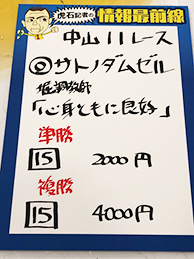 虎石記者の情報最前線
中山11レース
◎サトノダムゼル
堀調教師
「心身ともに良好」
単勝
15 2000円
複勝
15 4000円